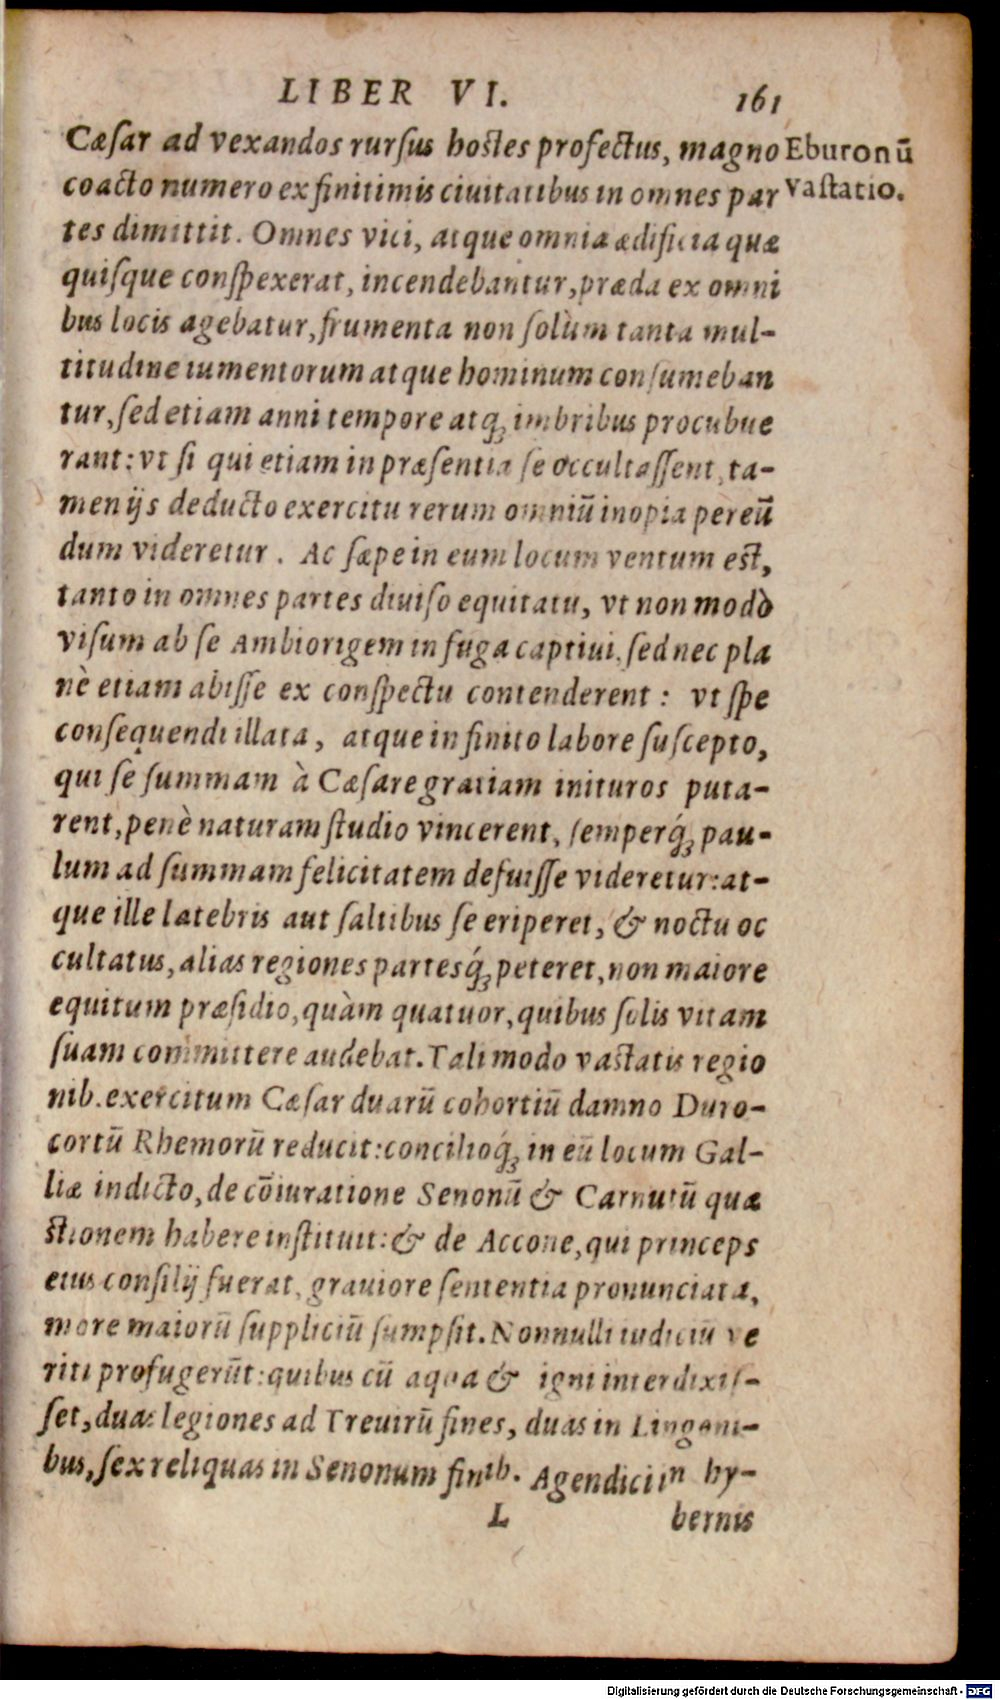 LIBER VI. 161
Cæſar ad vexandos rurſus hostes profectus, magno
Eburonū
coacto numero ex finitimis ciuitatibus in omnes par
Vastatio.
tes dimittit. Omnes vici, atque omnia ædificia quæ
quiſque conſpexerat, incendebantur, præda ex omni
bus locis agebatur, frumenta non ſolùm tanta mul-
titudine iumentorum atque hominum conſumeban
tur, ſed etiam anni tempore atq́ꝫ imbribus procubue
rant: vt ſi qui etiam in præſentia ſe occultaſſent, ta-
men ijs deducto exercitu rerum omniū inopia pereū
dum videretur. Ac ſæpe in eum locum ventum est,
tanto in omnes partes diuiſo equitatu, vt non modò
viſum ab ſe Ambiorigem in fuga captiui, ſed nec pla
nè etiam abiſſe ex conſpectu contenderent: vt ſpe
conſequendi illata, atque infinito labore ſuſcepto,
qui ſe ſummam à Cæſare gratiam inituros puta-
rent, penè naturam ſtudio vincerent, ſemperq́ꝫ pau-
lum ad ſummam felicitatem defuiſſe videretur: at-
que ille latebris aut ſaltibus ſe eriperet, & noctu oc
cultatus, alias regiones partesq́ꝫ peteret, non maiore
equitum præſidio, quàm quatuor, quibus ſolis vitam
ſuam committere audebat. Tali modo vastatis regio
nib. exercitum Cæſar duarū cohortiū damno Duro-
cortū Rhemorū reducit: concilioq́ꝫ in eū locum Gal-
liæ indicto, de cōiuratione Senonū & Carnutū quæ
stionem habere inſtituit: & de Accone, qui princeps
eius conſilij fuerat, grauiore ſententia pronunciata,
more maiorū ſuppliciū ſumpſit. Nonnulli iudiciū ve
riti profugerūt: quibus cū aqua & igni interdixiſ-
ſet, duas legiones ad Treuirū fines, duas in Lingoni-
bus, ſex reliquas in Senonum finib. Agendici in hy-
L bernis
Digitalisierung gefördert durch die Deutsche Forschungsgemeinschaft - DFG